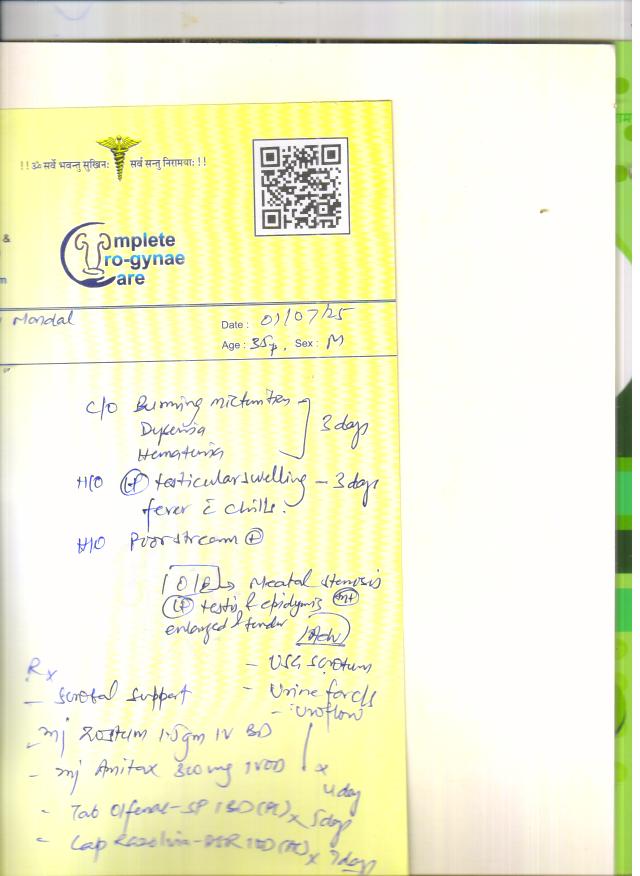 !! ॐ सर्वे भवन्तु सुखिनः सर्व सन्तु निरामयाः !!
&
m
omplete
ro-gynae
are
Mondal
Date : 01/07/25
Age : 35y, Sex : M
C/O Burning micturition
Dysuria
Hematuria
3 days
H/O testicular swelling - 3 days
fever c̄ chills.
H/O Poor stream ⊕
O/E → Meatal stenosis
testis & epidymis
enlarged & tender
Adv
- USG scrotum
Rx
- Scrotal support
- Urine for c/s
- Uroflow
- Inj Zostum 1.5gm IV BD
- Inj Amitax 300mg IV OD
x 4 day
- Tab Olfenac-SP 1 BD (PC) x 5 days
- Cap DSR 1 OD x 7 days